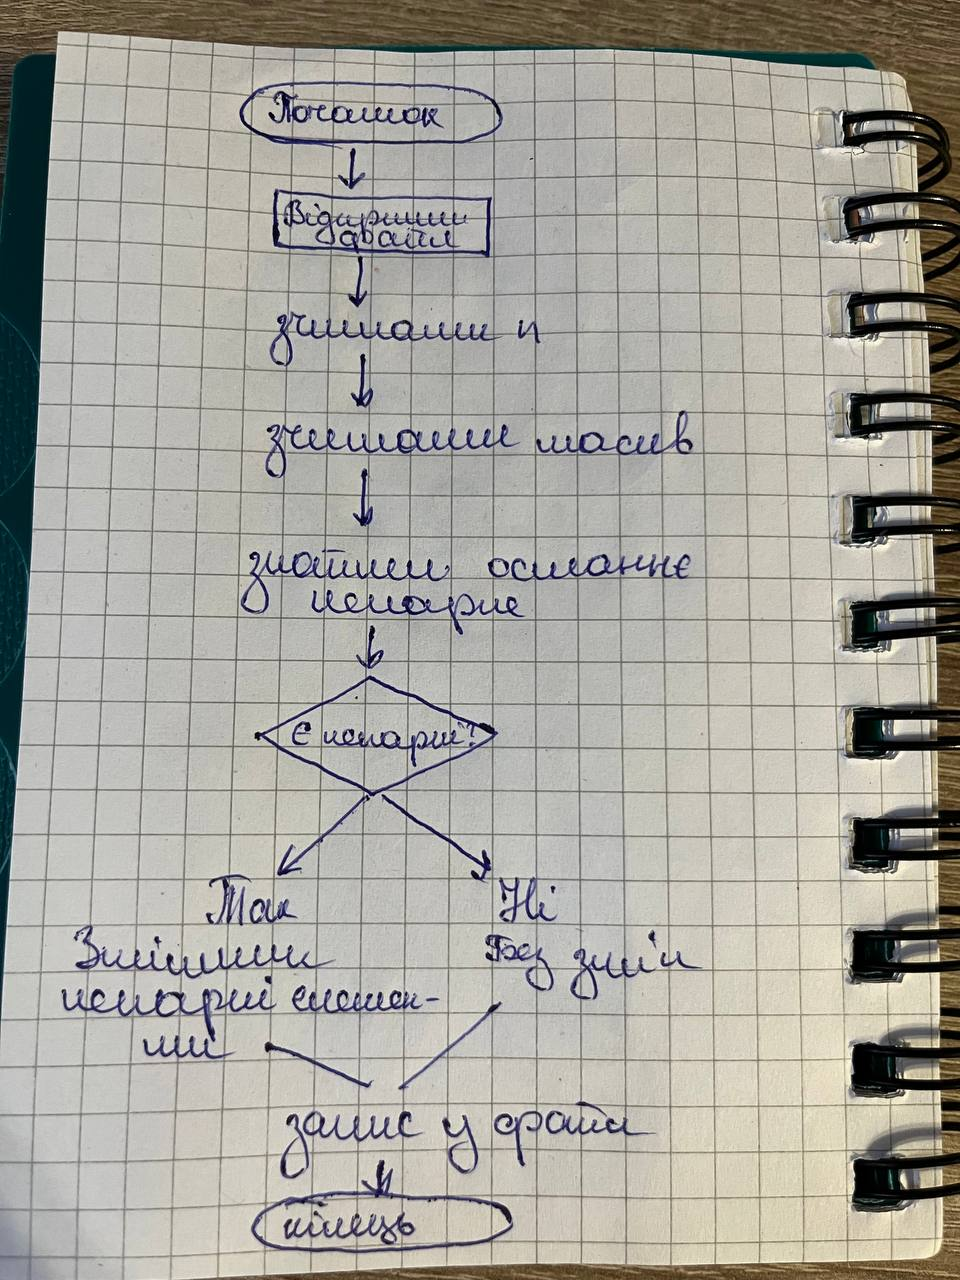 Початок
Відкрити
файл
зчитати n
зчитати масив
знайти останнє
непарне
Є непарні?
Так
Ні
Змінити
непарні елемен-
ти
Без змін
запис у файл
кінець